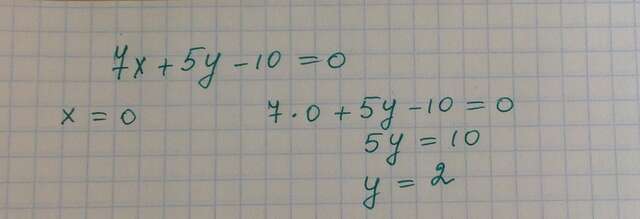 7x + 5y - 10 = 0
x = 0
7 · 0 + 5y - 10 = 0
5y = 10
y = 2